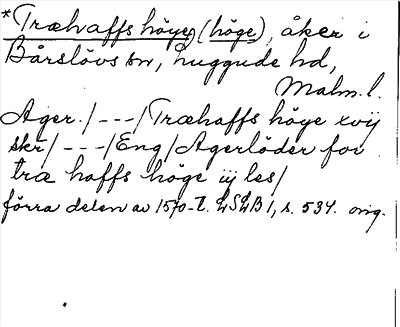 *Træhaffs höye (höge), åker i
Bårslövs sn, Luggude hd,
Malm. l.
Ager. / - - - / Træhaffs höye xvij
skr / - - - / Eng / Agerlöder for
træ haffs höge iij les /
förra delen av 1570-t. LSLB 1, s. 534. orig.